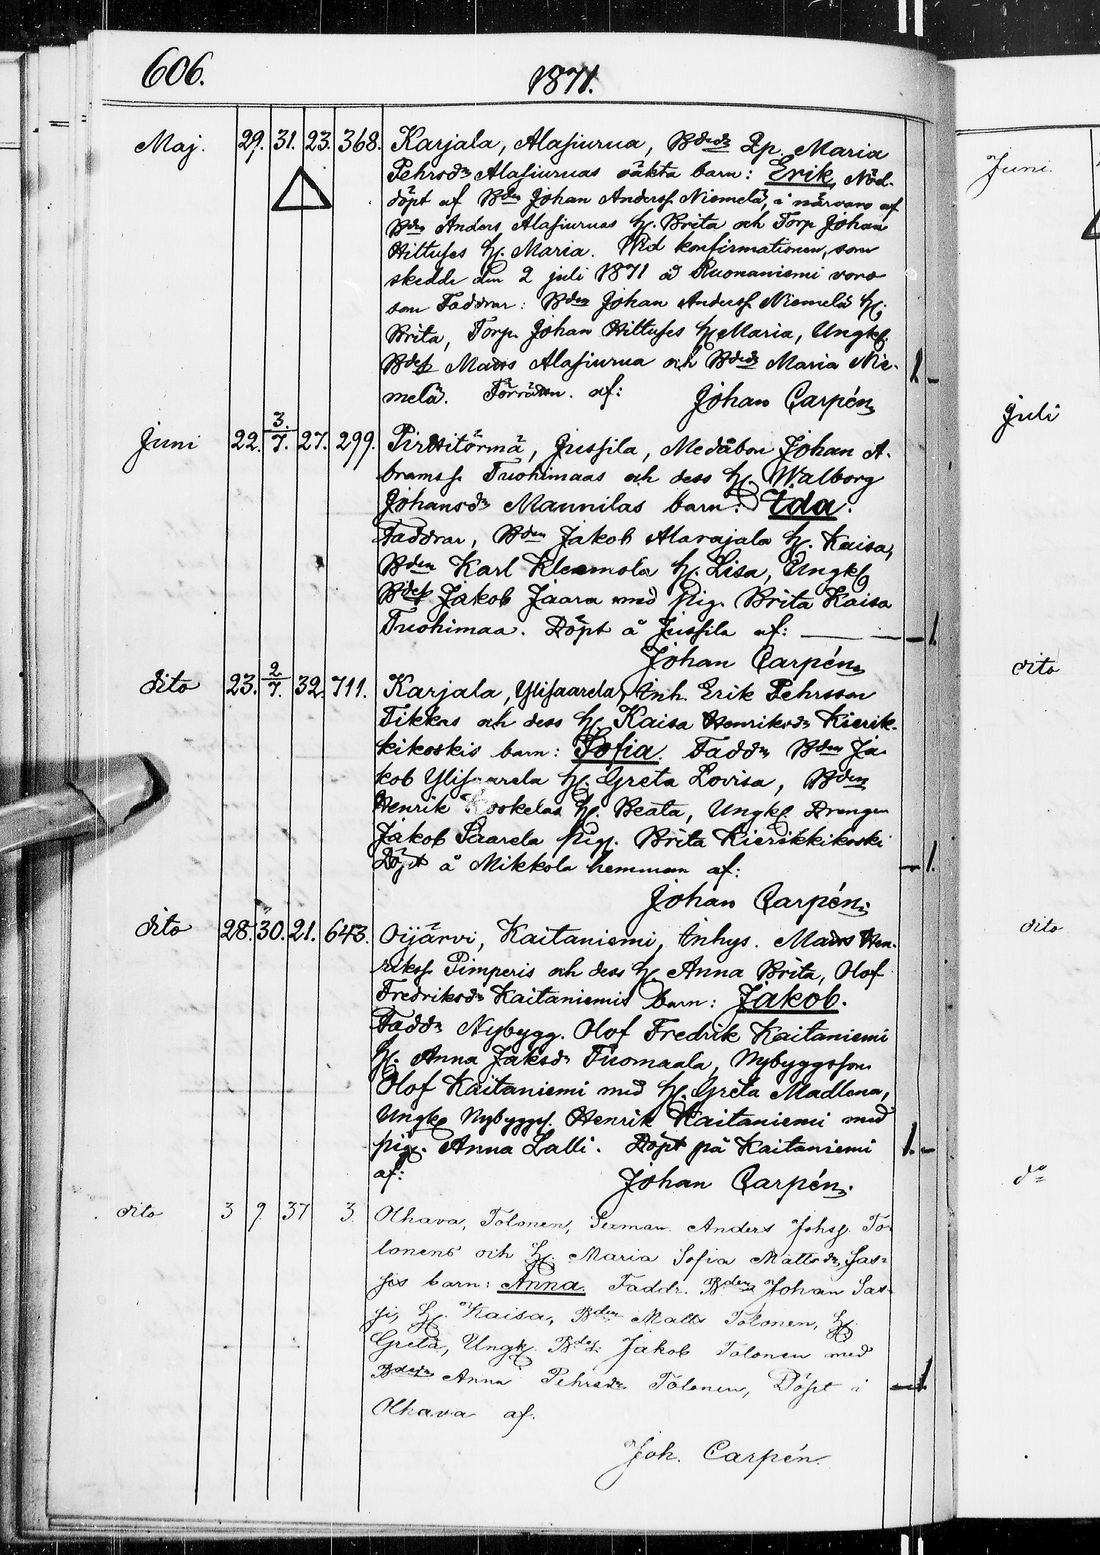 606.
1871.
Maj. 29. 31. 23. 368. Karjala, Alasiurua, Bdedr Pp. Maria
Pehrsdr Alasiuruas oäkta barn: Erik, Nöd-
döpt af Bden Johan Anderss. Niemelä, i närvaro af
Bden Anders Alasiuruas H. Brita och Torp Johan
Hiltuses H. Maria. Wid konfirmationen, som
skedde den 2 juli 1871 å Ruonaniemi voro
som Faddrar: Bden Johan Anderss. Niemelä H.
Brita, Torp. Johan Hiltuses H. Maria, Ungk.
Bdes. Mats Alasiurua och Bdedr Maria Nie-
melä. Förrättn. af: Johan Carpén.
Juni 22. 3./7. 27. 299. Pirttitörmä, Jussila, Medåbon Johan A-
bramss. Tuohimaas och dess H. Walborg
Johansdr Mannilas barn: Ida.
Faddrar, Bden Jakob Alarajala H. Kaisa,
Bden Karl Kleemola H. Lisa, Ungk.
Bdes. Jakob Jaara med pig. Brita Kaisa
Tuohimaa. Döpt å Jussila af:
Johan Carpén.
dito 23. 2/7. 32. 711. Karjala, Ylisaarela, Inh. Erik Pehrsson
Tikkas och dess H. Kaisa Henriksdr Kierik-
kikoskis barn: Sofia. Faddr Bden Ja-
kob Ylisaarela H. Greta Lovisa, Bden
Henrik Koskelas H. Beata, Ungk. Drengen
Jakob Saarela pig. Brita Kierikkikoski
Döpt å Mikkola hemman af:
Johan Carpén.
dito 28. 30. 21. 643. Oijärvi, Kaitaniemi, Inhys. Mats Hen-
rikss. Pimperis och dess H. Anna Brita, Olof
Fredriksdr Kaitaniemis barn: Jakob.
Faddr Nybygg. Olof Fredrik Kaitaniemi
H. Anna Jaksdr Tuomaala, Nybyggsson
Olof Kaitaniemi med H. Greta Madlena,
Ungk. Nybyggs. Henrik Kaitaniemi med
pig. Anna Lalli. Döpt på Kaitaniemi
af: Johan Carpén.
dito 3 9. 37 3. Olhava, Tolonen, Sexman Anders Johss. To-
lonens och H. Maria Sofia Mattsdr Sas-
sis barn: Anna. Faddr. Bden Johan Sas-
si, H. Kaisa, Bden Matts Tolonen, H.
Greta, Ungk. Bdes. Jakob Tolonen med
Bdedr Anna Pehrsdr Tolonen, Döpt i
Olhava af.
Joh. Carpén.
Juni.
Juli
dito
dito
do